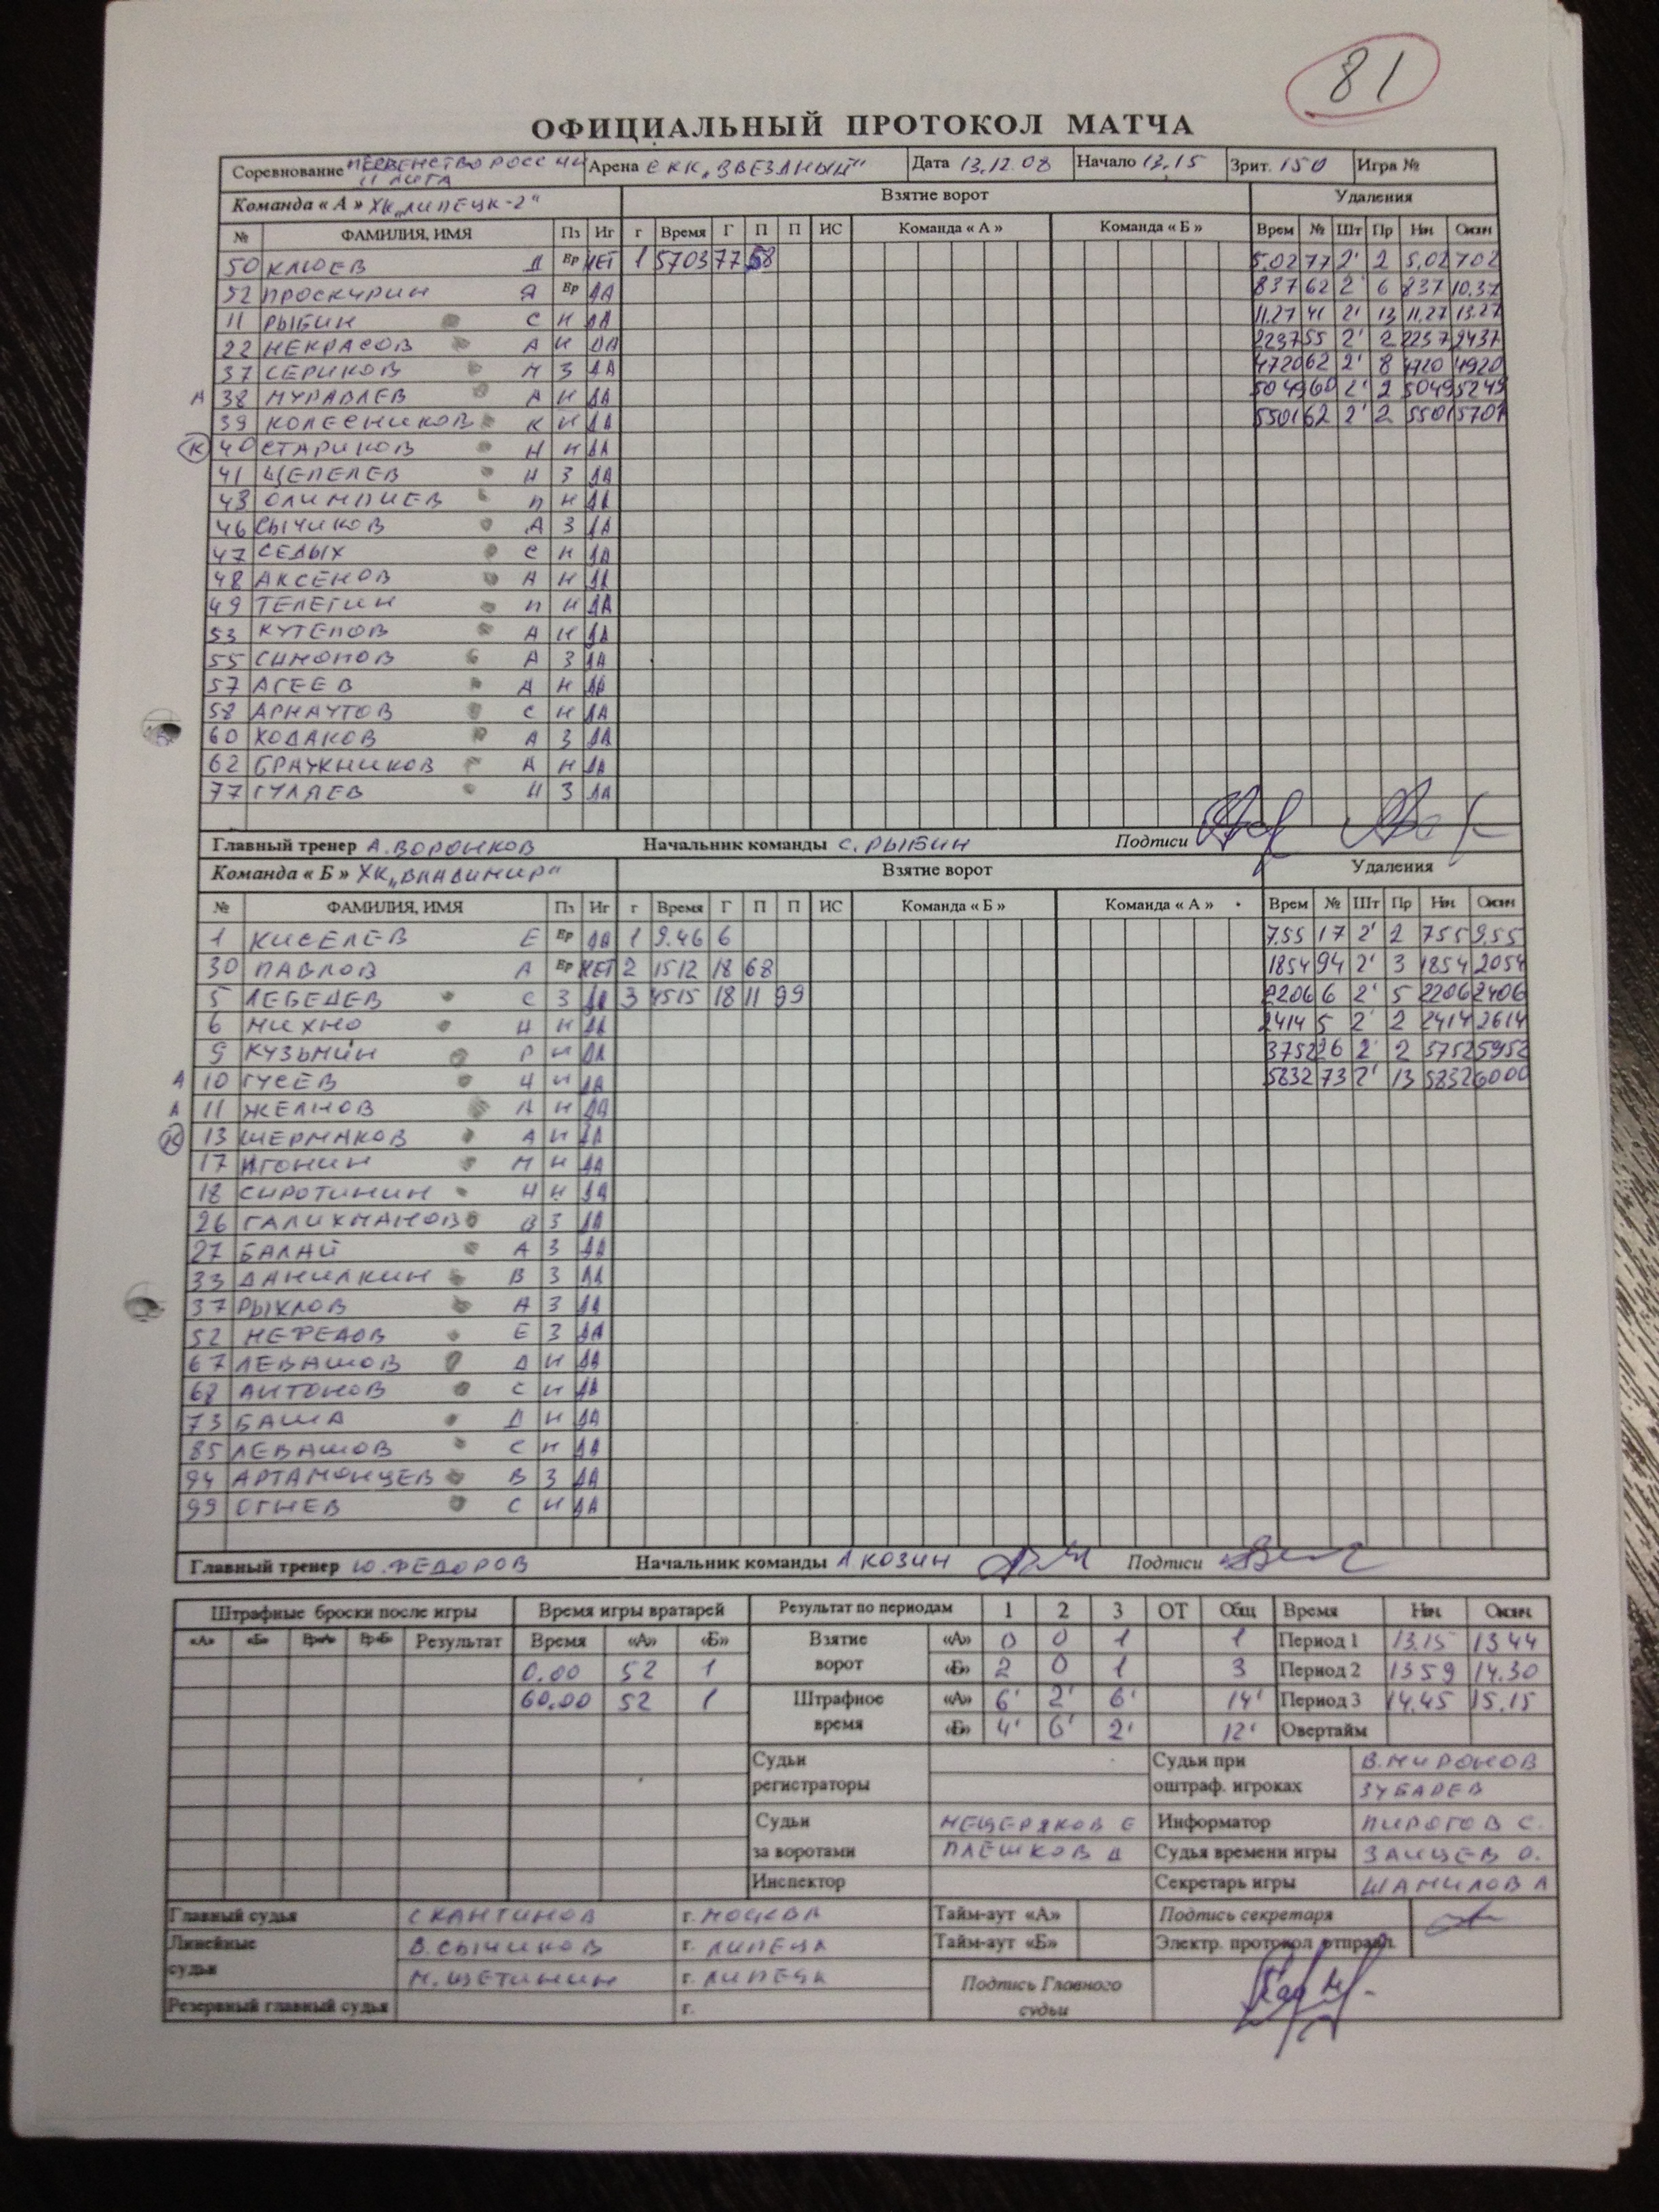 81
ОФИЦИАЛЬНЫЙ ПРОТОКОЛ МАТЧА
Соревнование ПЕРВЕНСТВО РОССИИ II ЛИГА Арена СКК "ЗВЕЗДНЫЙ" Дата 13.12.08 Начало 13.15 Зрит. 150 Игра №
Команда « А » ХК "ЛИПЕЦК-2" Взятие ворот Удаления
№ ФАМИЛИЯ, ИМЯ Пз Иг г Время Г П П ИС Команда « А » Команда « Б » Врем № Шт Пр Нач Оконч
50 КЛЮЕВ Д Вр НЕТ 1 5703 77 58 5.02 77 2' 2 5.02 702
52 ПРОСКУРИН Я Вр ДА 837 62 2' 6 837 10.37
11 РЫБИН С Н ДА 11.27 41 2' 13 11.27 13.27
22 НЕКРАСОВ А Н ДА 2237 55 2' 2 2237 2437
37 СЕРИКОВ М З ДА 4720 62 2' 8 4720 4920
А 38 МУРАВЛЕВ А Н ДА 5049 60 2' 2 5049 5249
39 КОЛЕСНИКОВ К Н ДА 5501 62 2' 2 5501 5701
К 40 СТАРИКОВ Н Н ДА
41 ЩЕПЕЛЕВ И З ДА
43 ОЛИМПИЕВ П Н ДА
46 СЫЧИКОВ А З ДА
47 СЕДЫХ С Н ДА
48 АКСЕНОВ А Н ДА
49 ТЕЛЕГИН П Н ДА
53 КУТЕПОВ А Н ДА
55 СИМОНОВ А З ДА
57 АГЕЕВ А Н ДА
58 АРНАУТОВ С Н ДА
60 ХОДАКОВ А З ДА
62 БРАЖНИКОВ А Н ДА
77 ГУЛЯЕВ И З ДА
Главный тренер А.ВОРОНКОВ Начальник команды С.РЫБИН Подписи
Команда « Б » ХК "ВЛАДИМИР" Взятие ворот Удаления
№ ФАМИЛИЯ, ИМЯ Пз Иг г Время Г П П ИС Команда « Б » Команда « А » Врем № Шт Пр Нач Оконч
1 КИСЕЛЕВ Е Вр ДА 1 9.46 6 7.55 17 2' 2 755 9.55
30 ПАВЛОВ А Вр НЕТ 2 1512 18 68 1854 94 2' 3 1854 2054
5 ЛЕБЕДЕВ С З ДА 3 4515 18 11 99 2206 6 2' 5 2206 2406
6 МИХНО И Н ДА 2414 5 2' 2 2414 2614
9 КУЗЬМИН Р Н ДА 3752 26 2' 2 3752 5952
А 10 ГУСЕВ И Н ДА 5832 73 2' 13 5832 6000
А 11 ЖЕЛНОВ А Н ДА
К 13 ШЕРМАКОВ А Н ДА
17 ИГОНИН М Н ДА
18 СИРОТИНИН Н Н ДА
26 ГАЛИХМАНОВ В З ДА
27 БАЛАЙ А З ДА
33 ДАНИЛКИН В З ДА
37 РЫХЛОВ А З ДА
52 НЕФЕДОВ Е З ДА
67 ЛЕВАШОВ Д Н ДА
68 АНТОНОВ С Н ДА
73 БАША Д Н ДА
85 ЛЕВАШОВ С Н ДА
94 АРТАМОНЦЕВ В З ДА
99 ОГНЕВ С Н ДА
Главный тренер Ю.ФЕДОРОВ Начальник команды А КОЗИН Подписи
Штрафные броски после игры Время игры вратарей Результат по периодам 1 2 3 ОТ Общ Время Нач Оконч
«А» «Б» Вр«А» Вр«Б» Результат Время «А» «Б» Взятие ворот «А» 0 0 1 1 Период 1 13.15 1344
0.00 52 1 «Б» 2 0 1 3 Период 2 1359 14.30
60.00 52 1 Штрафное время «А» 6' 2' 6' 14' Период 3 14.45 15.15
«Б» 4' 6' 2' 12' Овертайм
Судьи регистраторы Судьи при оштраф. игроках В.МИРОНОВ
ЗУБАРЕВ
Судьи за воротами МЕЩЕРЯКОВ Е Информатор ПИРОГОВ С.
ПЛЕШКОВ Д Судья времени игры ЗАЙЦЕВ О.
Инспектор Секретарь игры ШАМИЛОВ А
Главный судья С КАНТИНОВ г. МОСКВА Тайм-аут «А» Подпись секретаря
Линейные судьи В.СЫЧИКОВ г. ЛИПЕЦК Тайм-аут «Б» Электр. протокол отправл.
М.ЩЕТИНИН г. ЛИПЕЦК Подпись Главного судьи
Резервный главный судья г.